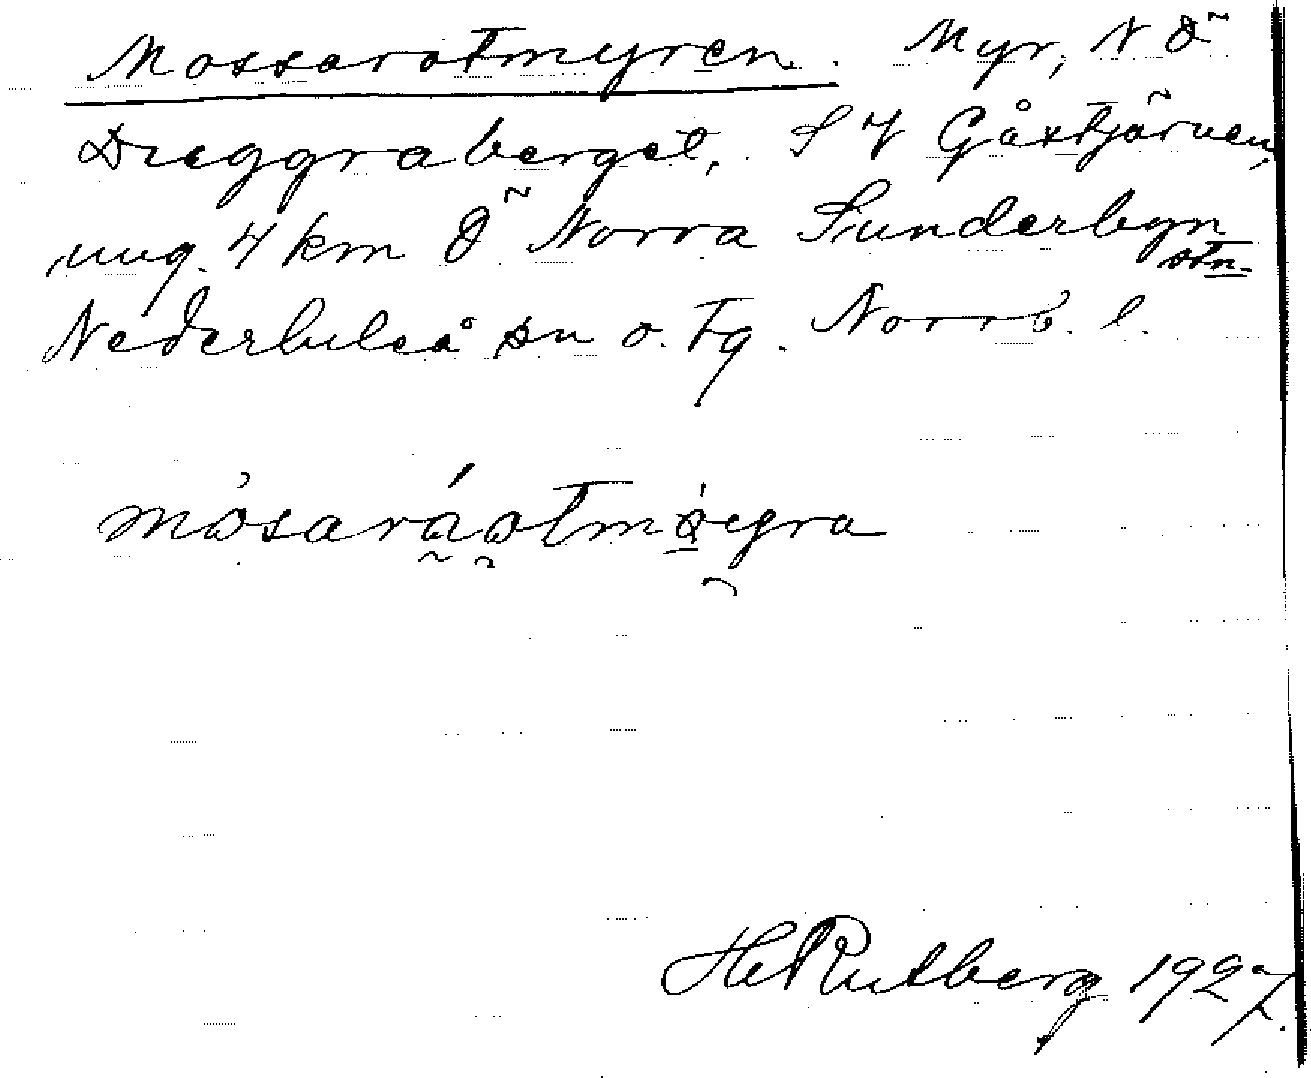 Mossarotmyren. Myr, N Ö
Druggraberget, S V Gåstjärnen,
ung. 4 km Ö Norra Sunderbyn
stn.
Nederluleå sn o. tg. Norrb. l.
Rutberg 1927.